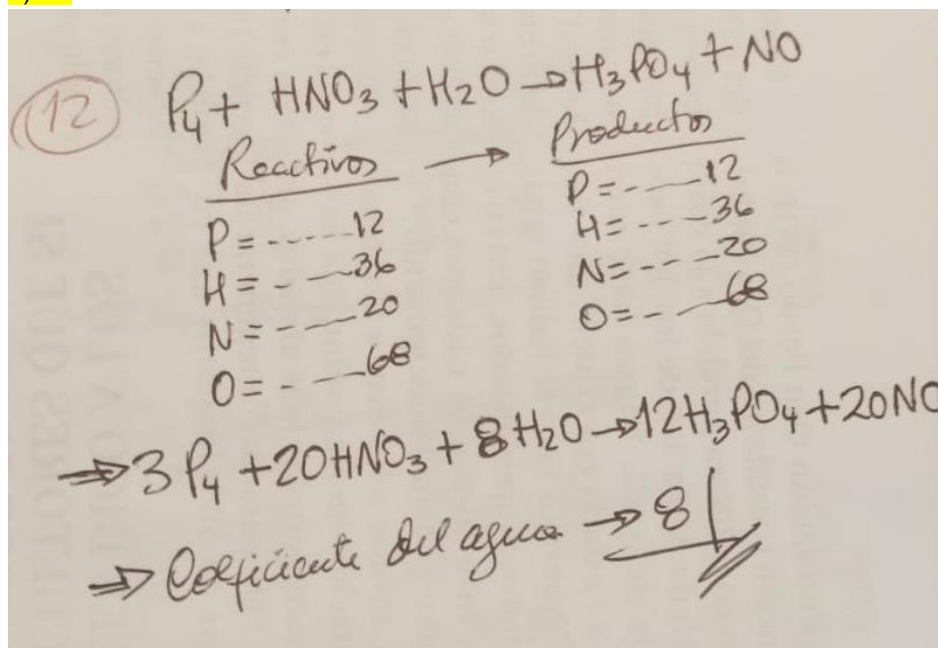 12
P₄ + HNO₃ + H₂O → H₃PO₄ + NO
Reactivos → Productos
P = ------ 12 P = ------ 12
H = ------ 36 H = ------ 36
N = ------ 20 N = ------ 20
O = ------ 68 O = ------ 68
⇒ 3P₄ + 20HNO₃ + 8H₂O → 12H₃PO₄ + 20NO
⇒ Coeficiente del agua → 8